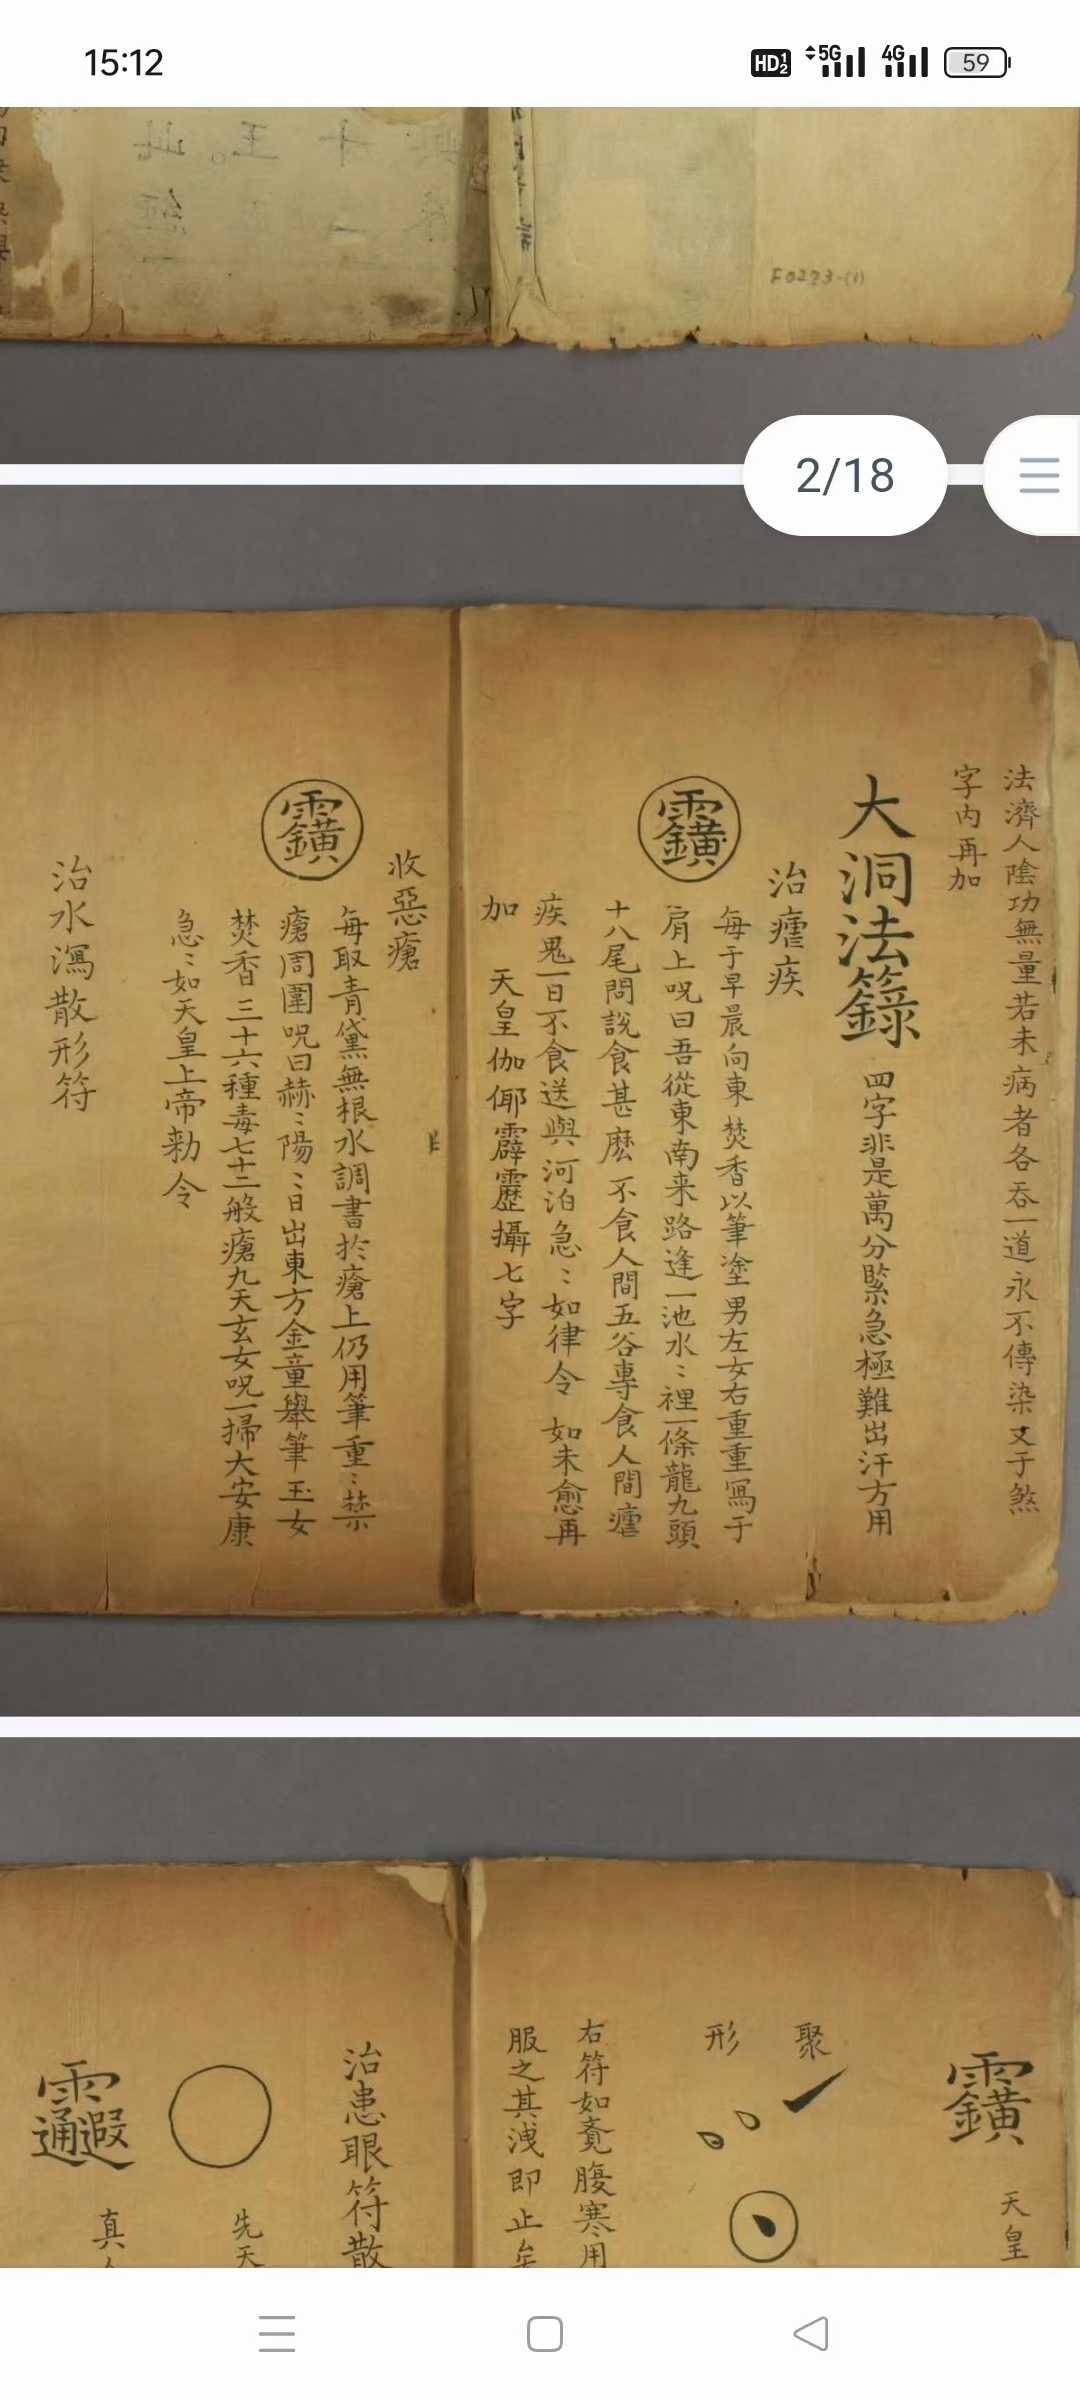 15:12
HD 1 2 5G 4G 59
F0273-(1)
2/18
法濟人陰功無量若未病者各吞一道永不傳染又于煞
字內再加
大洞法籙 四字非是萬分緊急極難出汗方用
治瘧疾
每于早晨向東焚香以筆塗男左女右重重寫于
肩上呪曰吾從東南来路逢一池水〻裡一條龍九頭
十八尾問說食甚麽不食人間五谷專食人間瘧
疾鬼一日不食送與河泊急〻如律令 如未愈再
加 天皇伽倻霹靂攝七字
收惡瘡
每取青黛無根水調書於瘡上仍用筆重〻禁
瘡周圍呪曰赫〻陽〻日出東方金童舉筆玉女
焚香三十六種毒七十二般瘡九天玄女呪一掃大安康
急〻如天皇上帝勅令
治水瀉散形符
天皇
聚
形
右符如覔腹寒用
服之其洩即止矣
治患眼符散
先天
真人